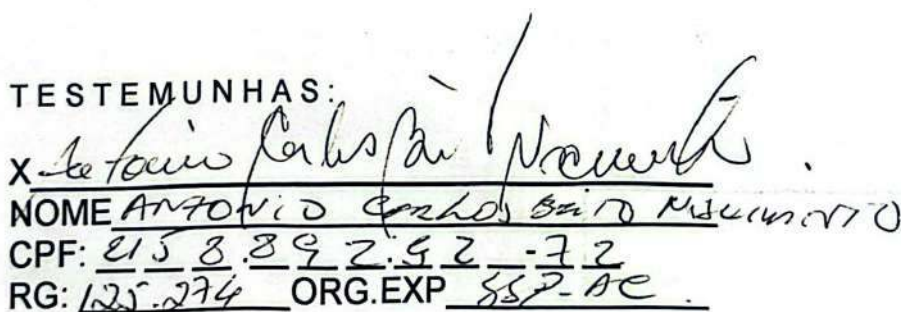 TESTEMUNHAS:
X Antonio Carlos Nascimento
NOME ANTONIO CARLOS BRITO NASCIMENTO
CPF:
RG: 125.274 ORG.EXP SSP-AC.